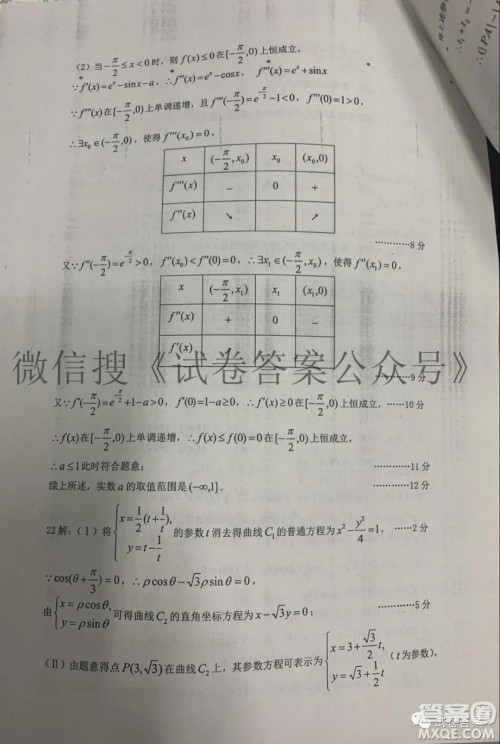 (2) 当-π/2≤x<0时，则f(x)≤0在[-π/2,0)上恒成立，
∵f'(x)=eˣ-sinx-a，∴f''(x)=eˣ-cosx，f'''(x)=eˣ+sinx
∵f'''(x)在[-π/2,0)上单调递增，且f'''(-π/2)=e^(-π/2)-1<0，f'''(0)=1>0，
∴∃x₀∈(-π/2,0)，使得f'''(x₀)=0，
x (-π/2,x₀) x₀ (x₀,0)
f'''(x) - 0 +
f''(x) ↘ ↗
…………8分
又∵f''(-π/2)=e^(-π/2)>0，f''(x₀)<f''(0)=0，∴∃x₁∈(-π/2,x₀)，使得f''(x₁)=0，
x (-π/2,x₁) x₁ (x₁,0)
f''(x) + 0 -
f'(x)
微信搜《试卷答案公众号》
…………9分
又∵f'(-π/2)=e^(-π/2)+1-a>0，f'(0)=1-a≥0，∴f'(x)≥0在[-π/2,0)上恒成立，……10分
∴f(x)在[-π/2,0)上单调递增，∴f(x)≤f(0)=0在[-π/2,0)上恒成立，
∴a≤1此时符合题意； …………11分
综上所述，实数a的取值范围是(-∞,1]． …………12分
22解：(Ⅰ)将{x=1/2(t+1/t), y=t-1/t 的参数t消去得曲线C₁的普通方程为x²-y²/4=1， ……2分
∵cos(θ+π/3)=0，∴ρcosθ-√3ρsinθ=0，
由{x=ρcosθ, y=ρsinθ 可得曲线C₂的直角坐标方程为x-√3y=0； …………5分
(Ⅱ)由题意得点P(3,√3)在曲线C₂上，其参数方程可表示为{x=3+√3/2t, y=√3+1/2t (t为参数)，
∴t₁+t₂=
试卷答案
答案圈
MXQE.COM